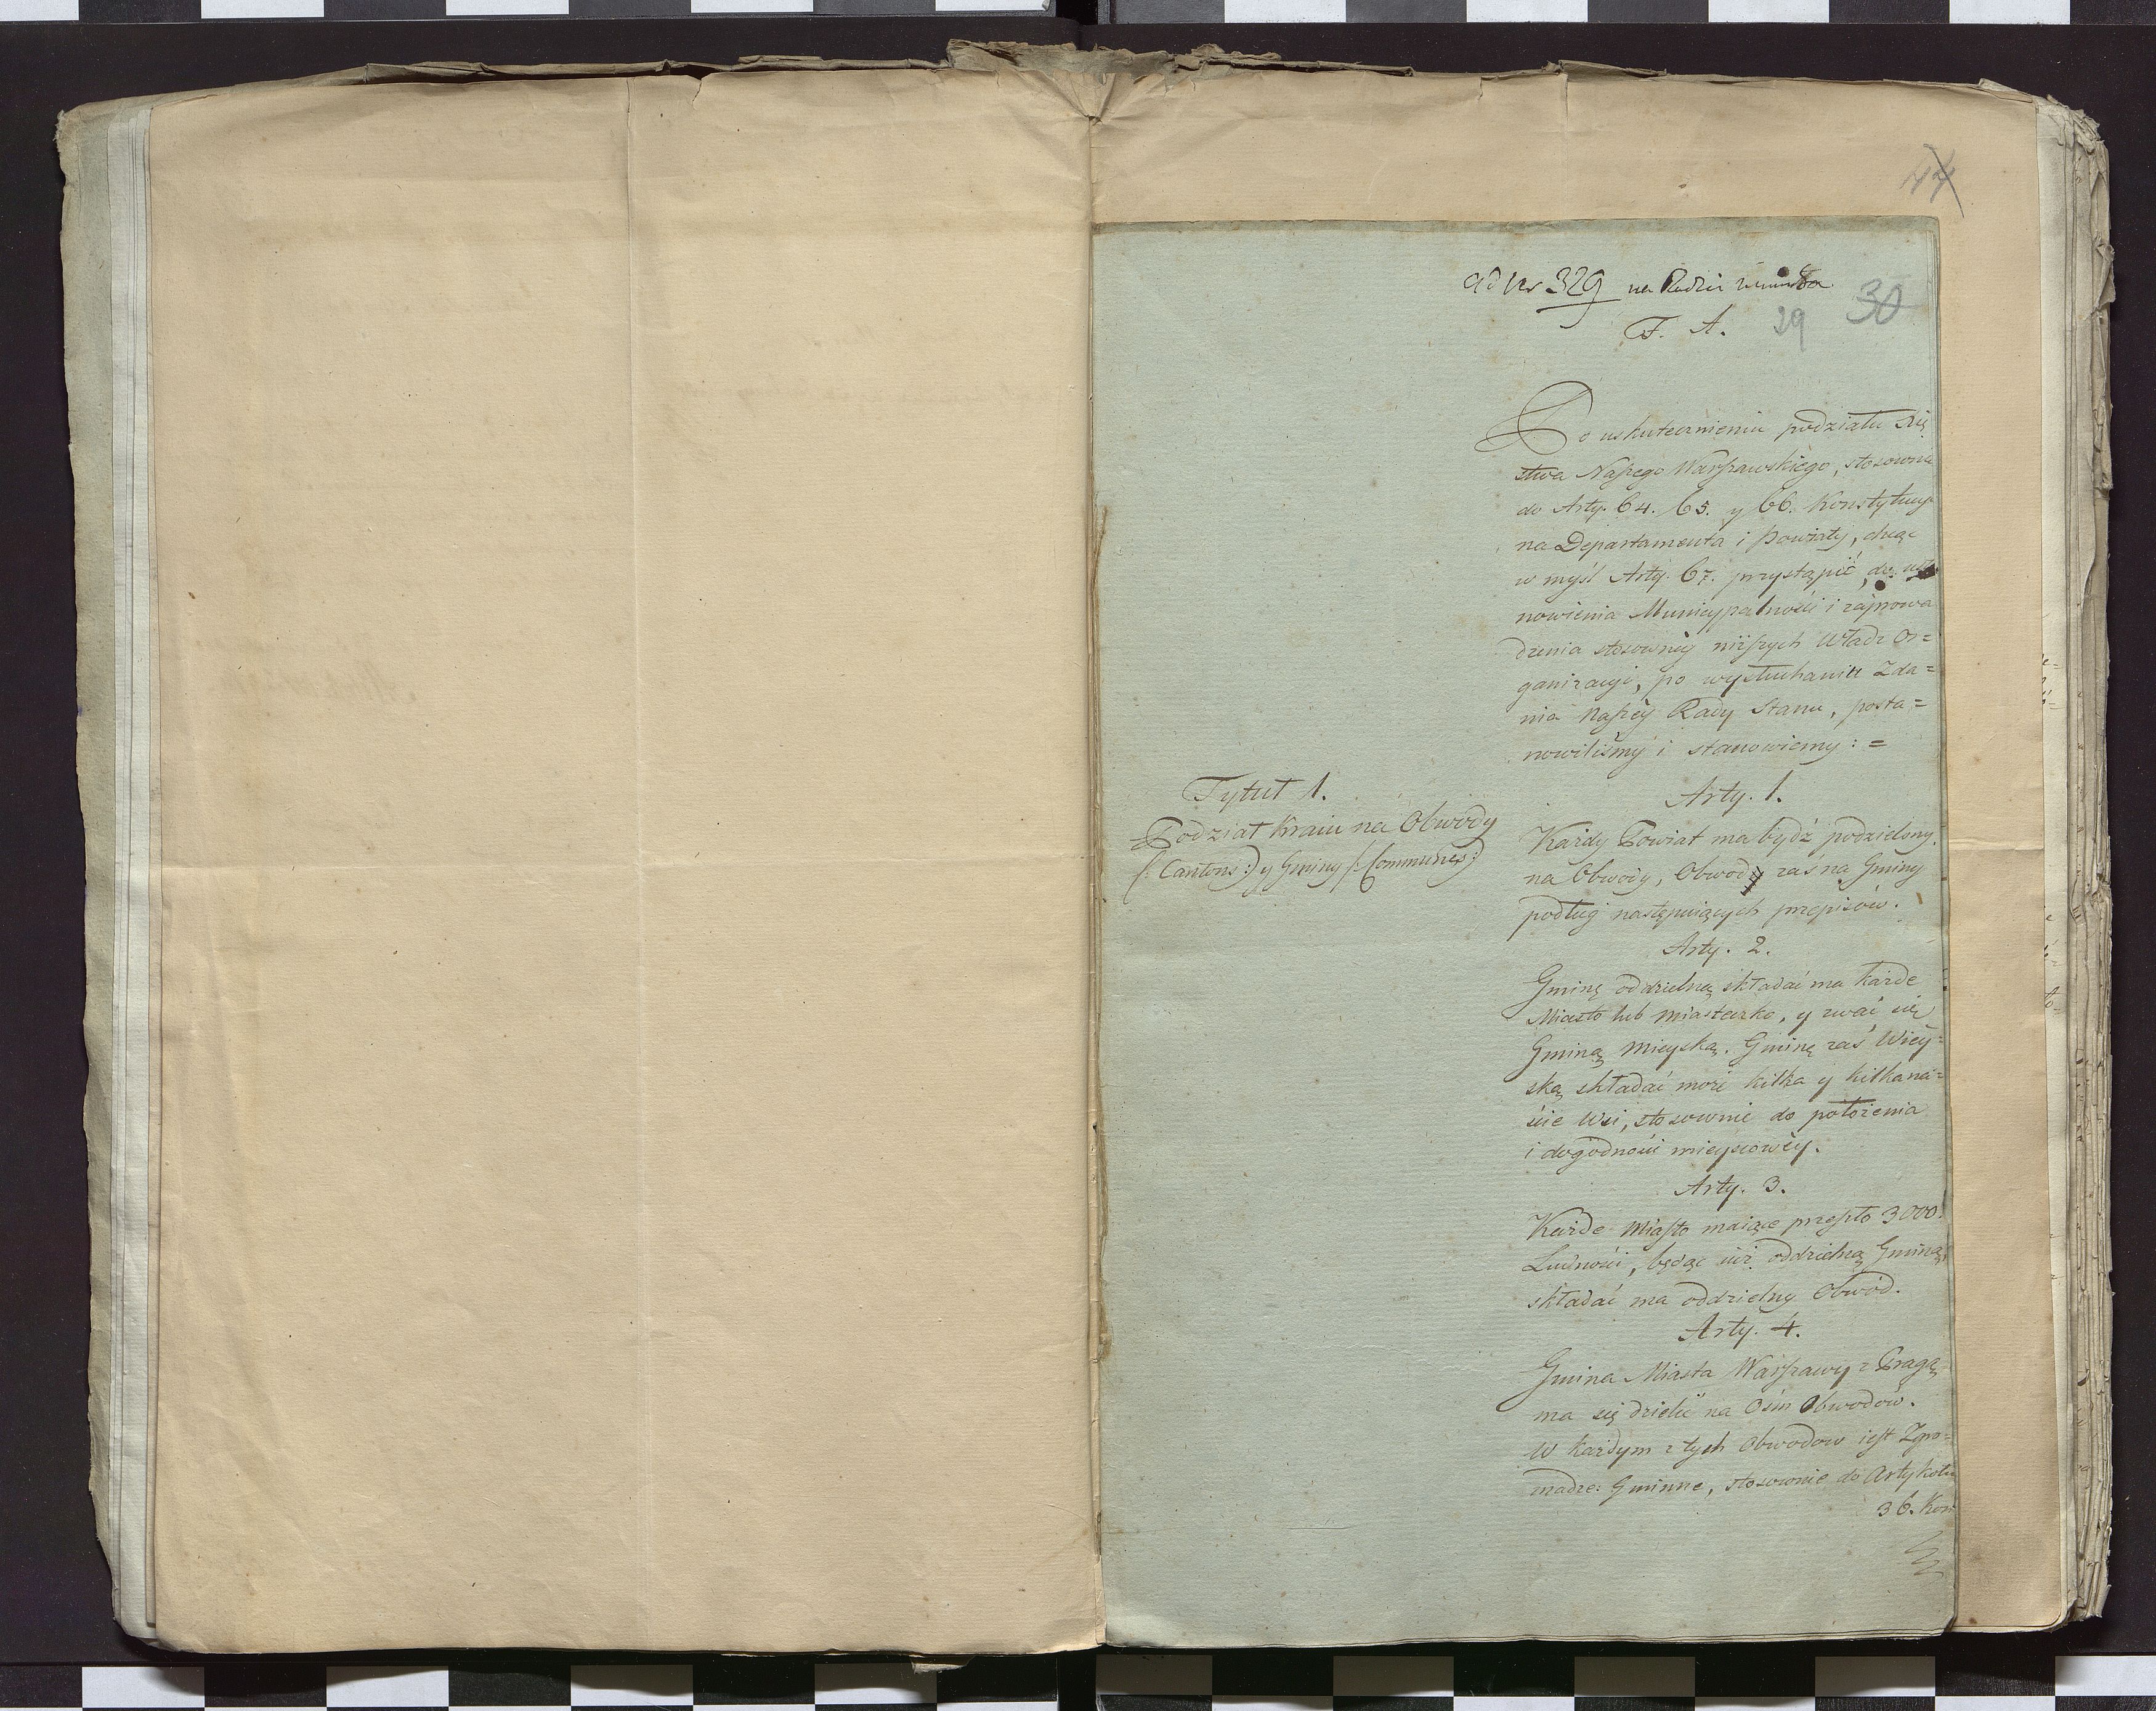 44
ad Nr 329 na Radzie
F. A. 29 30
Po uskutecznieniu podziału Xię
stwa Naszego Warszawskiego, stosownie
do Arty. 64. 65. y 66. Konstytucyi
na Departamenta i Powiaty, chcąc
w myśl Arty. 67. przystąpić, do usta
nowienia Municypalności i zaprowa
dzenia stosowney niższych Władz Or=
ganizacyi, po wysłuchaniu Zda=
nia Naszey Rady Stanu, posta=
nowiliśmy i stanowiemy: =
Tytuł 1.
Podział Kraiu na Obwody
(: Cantons:) y Gminy (: Communes:)
Arty. 1.
Każdy Powiat ma bydź podzielony
na Obwody, Obwody zaś na Gminy
podług następuiących przepisów.
Arty. 2.
Gminę oddzielną składać ma każde
Miasto lub Miasteczko, y zwać się
Gminą Mieyską. Gminę zaś Wiey=
ską składać może kilka y kilkana=
ście Wsi, stosownie do położenia
i dogodności mieyscowey.
Arty. 3.
Każde Miasto maiące przeszło 3000.
Ludności, będąc iuż oddzielną Gminą,
składać ma oddzielny Obwód.
Arty. 4.
Gmina Miasta Warszawy z Pragą
ma się dzielić na Ośm Obwodów.
W każdym z tych Obwodow iest Zgro=
madze: Gminne, stosownie do Artykułu
36. Kon